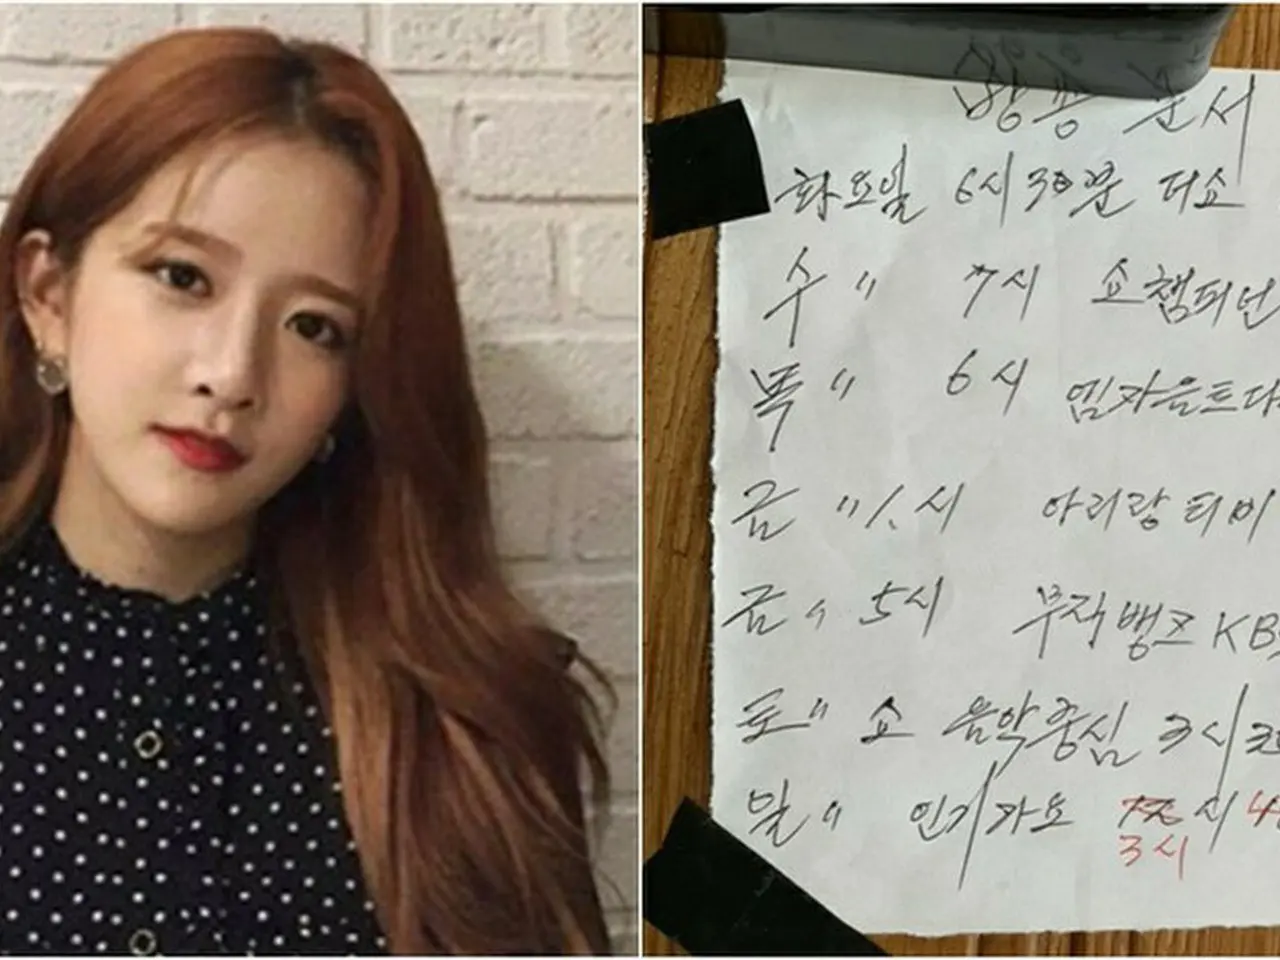 방송 순서
화요일 6시30분 더쇼
수 〃 7시 쇼챔피언
목 〃 6시 엠카운트다
금 〃 1시 아리랑티비
금 〃 5시 뮤직뱅크 KBS
토 〃 쇼 음악중심 3시
일 〃 인기가요 시
3시